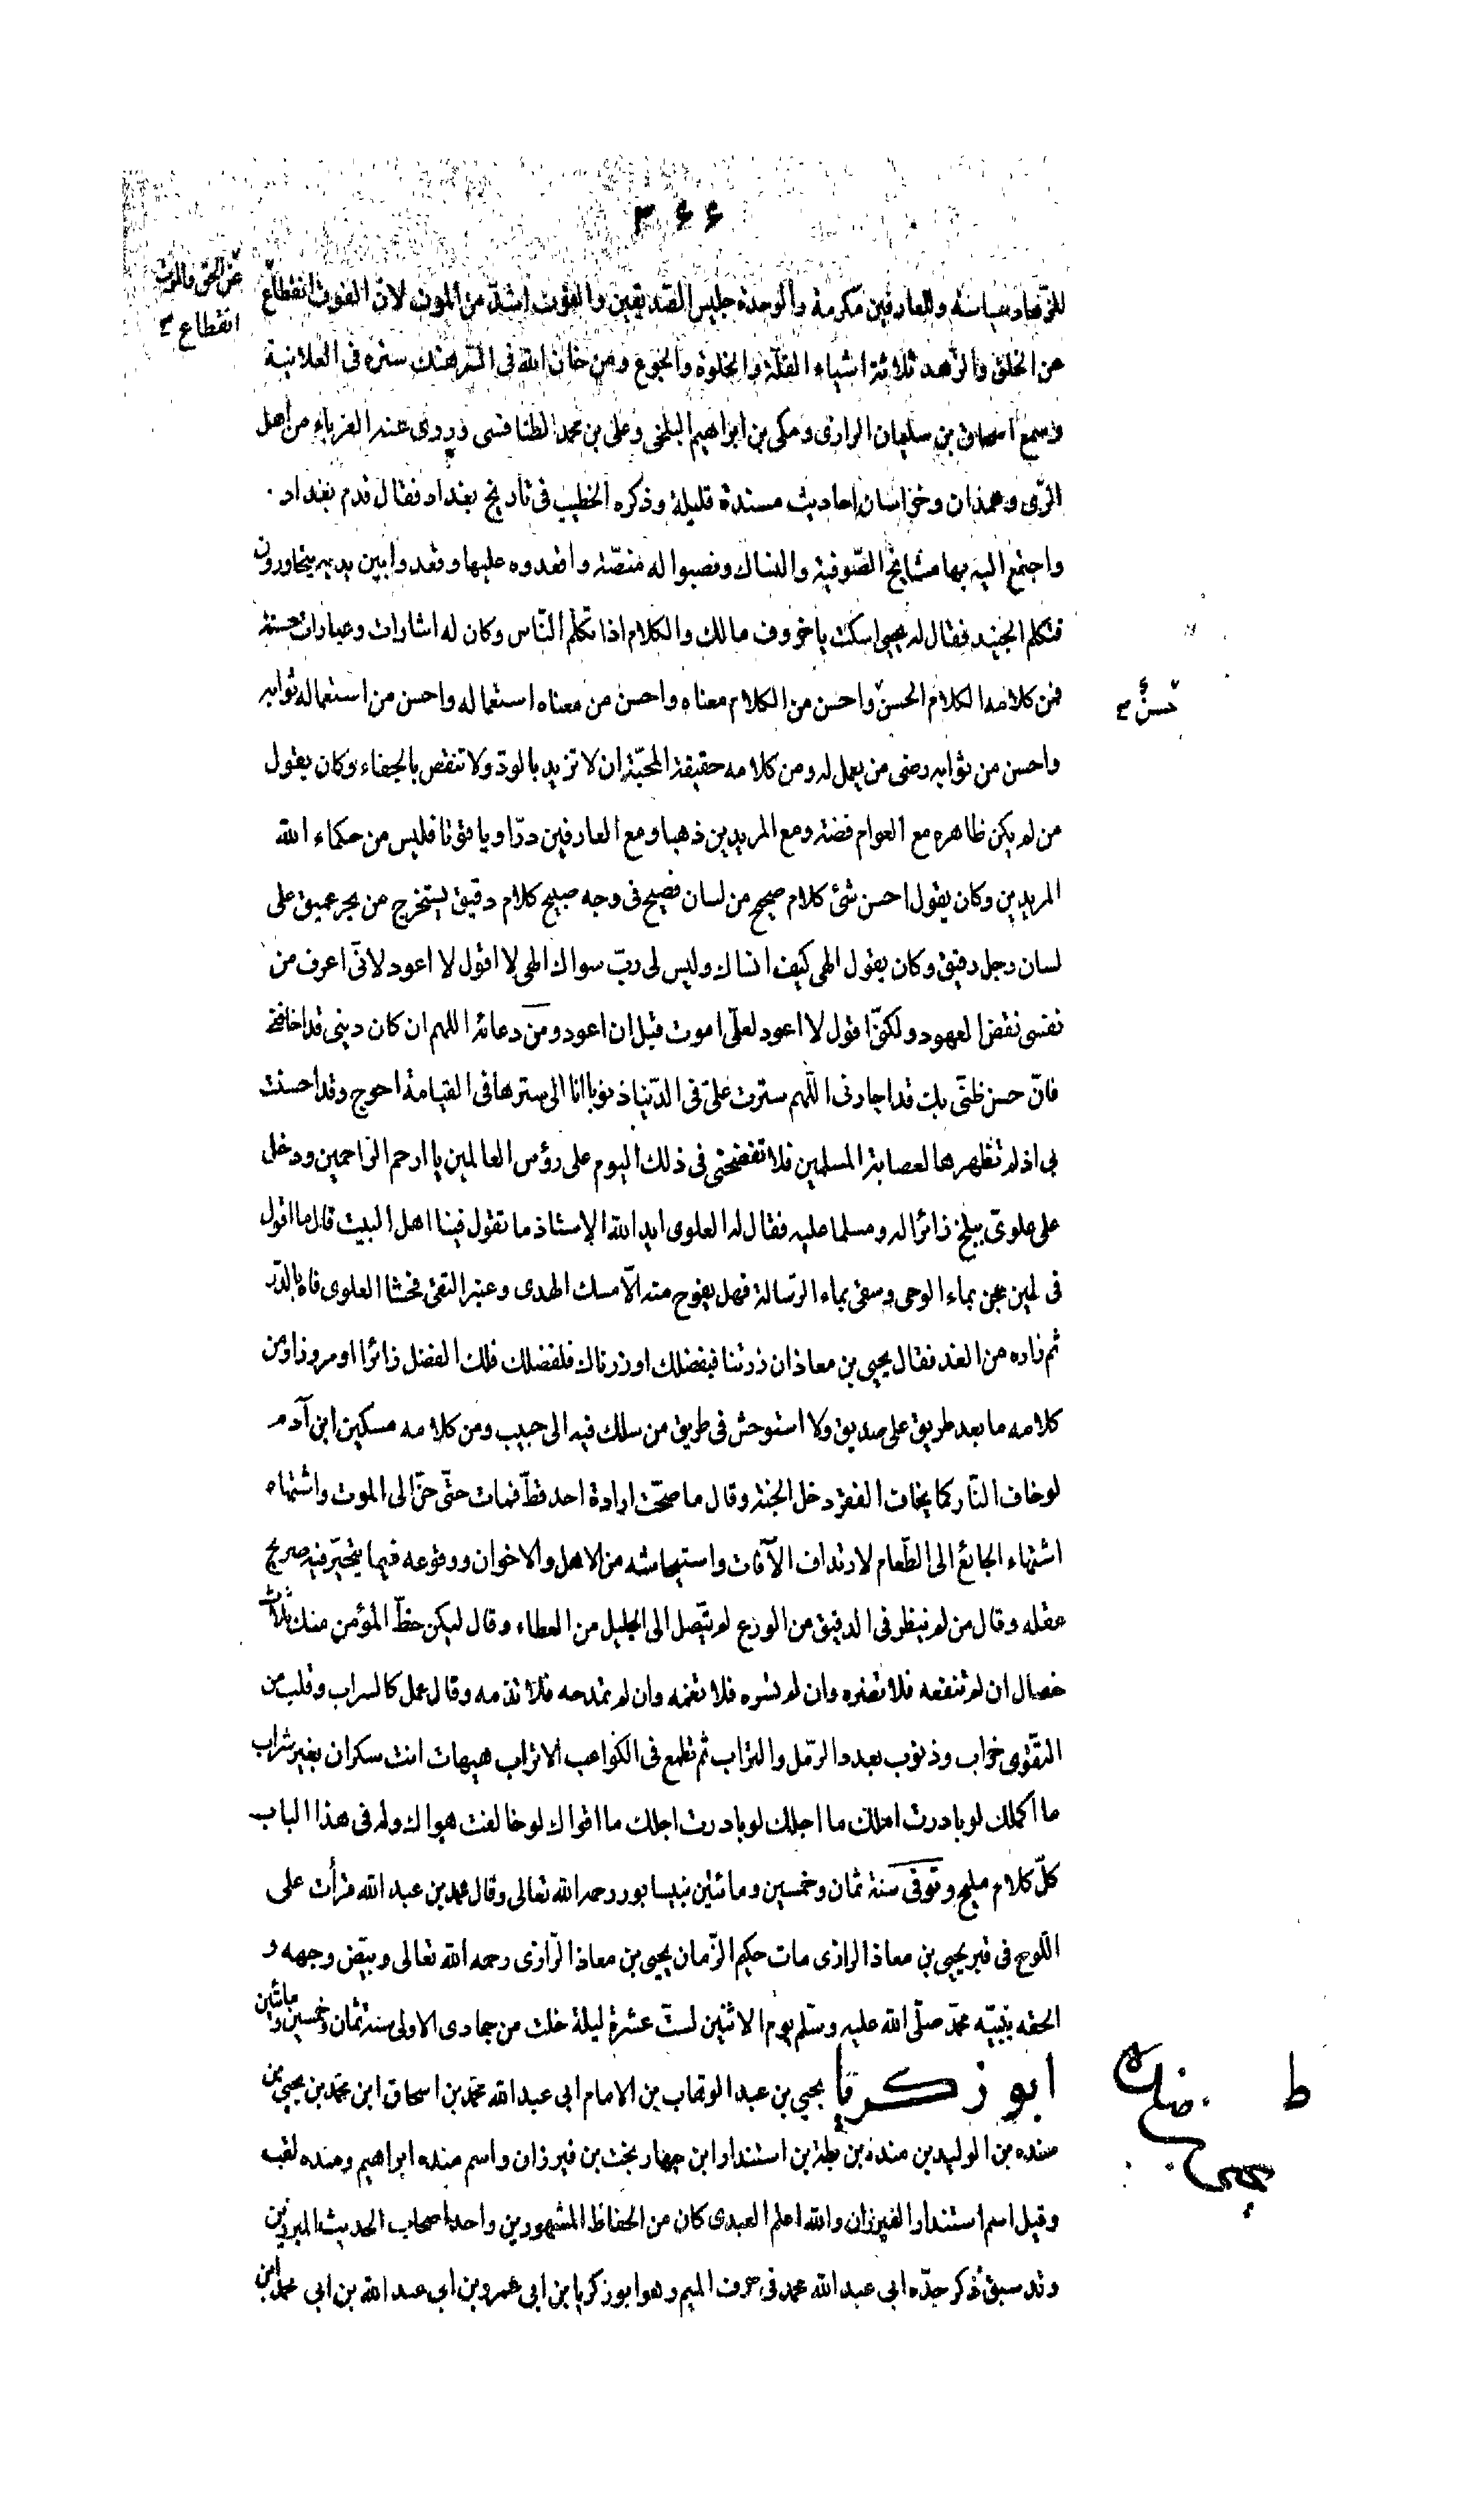 ٣٦٦
للزهاد سياسة وللعارفين مكرمة والوحدة جليس الصّديقين والفوت اشدّ من الموت لان الفوت انقطاع
عن الحق والموت
انقطاع
عن الخلق والزهد ثلاثة اشياء القلّة والخلوة والجوع ومن خان الله فى السّر هتك ستره فى العلانية
وسمع اسحاق بن سليمان الرازى ومكى بن ابراهيم البلخى وعلى بن محمد الطنافسى وروى عنه الغرباء من اهل
الرّى وهمذان وخراسان احاديث مسندة قليلة وذكره الخطيب فى تاريخ بغداد فقال قدم بغداد
واجتمع اليه بها مشايخ الصّوفية والنساك ونصبوا له منصّة واقعدوه عليها وقعدوا بين يديه يتحاورون
فتكلم الجنيد فقال له يحيى اسكت يا خروف مالك والكلام اذا تكلم النّاس وكان له اشارات وعبارات حسنة
فمن كلامه الكلام الحسن واحسن من الكلام معناه واحسن من معناه استعماله واحسن من استعماله ثوابه
حسنٌ
واحسن من ثوابه رضى من يعمل له ومن كلامه حقيقة المحبّة ان لا تزيد بالودّ ولا تنقص بالجفاء وكان يقول
من لم يكن ظاهره مع العوام فضة ومع المريدين ذهبا ومع العارفين درّا وياقوتا فليس من حكماء الله
المريدين وكان يقول احسن شئ كلام صحيح من لسان فصيح فى وجه صبيح كلام دقيق يستخرج من بحر عميق على
لسان رجل رفيق وكان يقول الهى كيف انساك وليس لى ربّ سواك الهى لا اقول لا اعود لانّى اعرف من
نفسى نقض العهود ولكنّى اقول لا اعود لعلّى اموت قبل ان اعود ومن دعائه اللهم ان كان ذنبى قد اخافنى
فانّ حسن ظنّى بك قد اجارنى اللّهم سترت علىّ فى الدّنيا ذنوبا انا الى سترها فى القيامة احوج وقد احسنت
بى اذ لم تظهرها لعصابة المسلمين فلا تفضحنى فى ذلك اليوم على رؤس العالمين يا ارحم الراحمين ودخل
على علوىّ ببلخ زائرا له ومسلما عليه فقال له العلوى ايد الله الاستاذ ما تقول فينا اهل البيت قال ما اقول
فى طين عجن بماء الوحى وسقى بماء الرّسالة فهل يفوح منه الّا مسك الهدى وعنبر التقى فحشا العلوى فاه بالدّر
ثم زاره من الغد فقال يحيى بن معاذ ان زرتنا فبفضلك او زرناك فلفضلك فلك الفضل زائرا او مزورا ومن
كلامه ما بعد طريق على صديق ولا استوحش فى طريق من سلك فيه الى حبيب ومن كلامه مسكين ابن آدم
لو خاف النّار كما يخاف الفقر دخل الجنة وقال ما صحّت ارادة احد قطّ فمات حتّى حنّ الى الموت واشتهاه
اشتهاء الجائع الى الطّعام لارتداف الآفات واستيحاشه من الاهل والاخوان ووقوعه فيما يتحيّر فيه صريح
عقله وقال من لم ينظر فى الدقيق من الورع لم يتّصل الى الجليل من العطاء وقال ليكن حظّ المؤمن منك ثلاث
خصال ان لم تنفعه فلا تضره وان لم تسره فلا تغمه وان لم تمدحه فلا تذمه وقال عمل كالسراب وقلب من
التقوى خراب وذنوب بعدد الرّمل والتراب ثم تطمع فى الكواعب الاتراب هيهات انت سكران بغير شراب
ما اكملك لو بادرت املك ما اجلك لو بادرت اجلك ما اقواك لو خالفت هواك وله فى هذا الباب
كلّ كلام مليح وتوفى سنة ثمان وخمسين ومائتين بنيسابور رحمه الله تعالى وقال محمد بن عبد الله قرأت على
اللّوح فى قبر يحيى بن معاذ الرازى مات حكيم الزّمان يحيى بن معاذ الرّازى رحمه الله تعالى وبيّض وجهه و
الحقه بنبيّه محمّد صلّى الله عليه وسلّم يوم الاثنين لستّ عشرة ليلة خلت من جمادى الاولى سنة ثمان وخمسين ومائتين
ابو زكريا يحيى بن عبد الوهاب بن الامام ابى عبد الله محمّد بن اسحاق ابن محمّد بن يحيى بن
ط
منده بن الوليد بن منده بن بطة بن استندار ابن چهار بخت بن فيرزان واسم منده ابراهيم ومنده لقب
وقيل اسم استندار الفيرزان والله اعلم العبدى كان من الحفاظ المشهورين واحد اصحاب الحديث المبرزين
وقد سبق ذكر جدّه ابى عبد الله محمد فى حرف الميم وهو ابو زكريا بن ابى عمرو بن ابى عبد الله بن ابى محمد بن